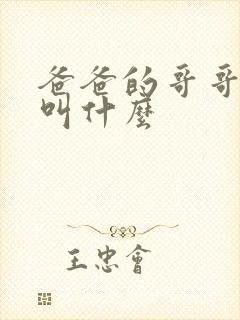 爸爸的哥哥
叫什麼
王忠會